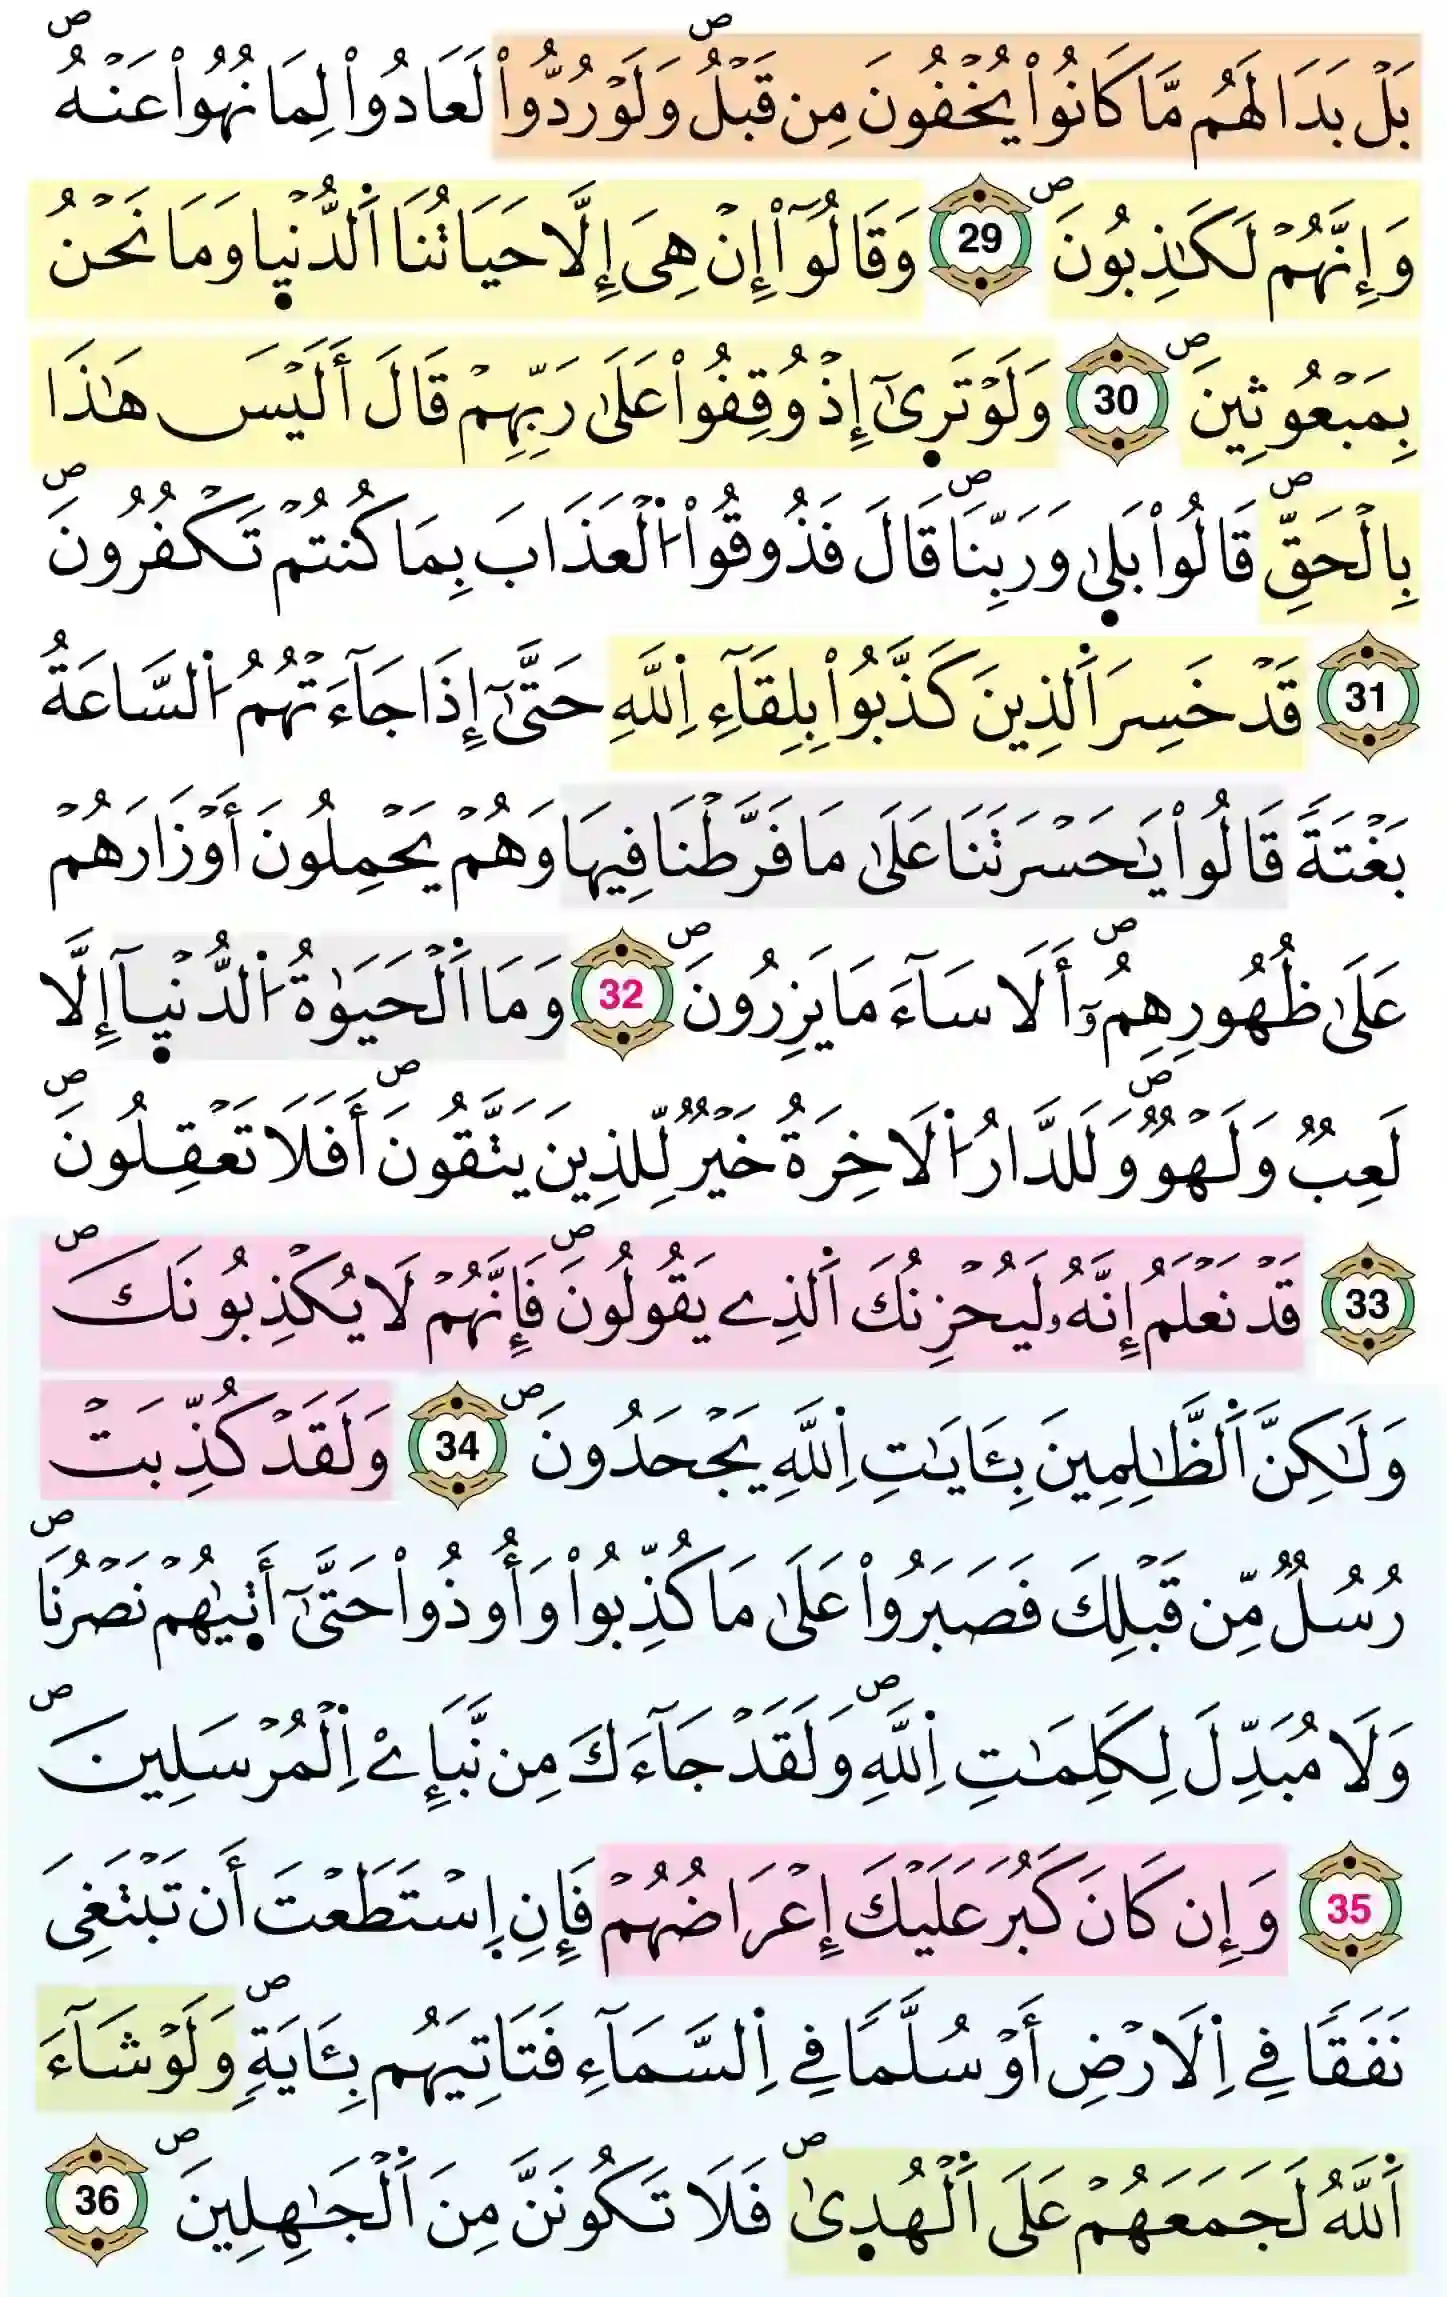 بَلْ بَدَا لَهُم مَّا كَانُواْ يُخْفُونَ مِن قَبْلُۖ وَلَوْ رُدُّواْ لَعَادُواْ لِمَا نُهُواْ عَنْهُۖ
وَإِنَّهُمْ لَكَٰذِبُونَۖ 29 وَقَالُوٓاْ إِنْ هِىَ إِلَّا حَيَاتُنَا اَ۬لدُّنْي۪ا وَمَا نَحْنُ
بِمَبْعُوثِينَۖ 30 وَلَوْ تَر۪ىٰٓ إِذْ وُقِفُواْ عَلَىٰ رَبِّهِمْ قَالَ أَلَيْسَ هَٰذَا
بِالْحَقِّۖ قَالُواْ بَل۪ىٰ وَرَبِّنَاۖ قَالَ فَذُوقُواْ اُ۬لْعَذَابَ بِمَا كُنتُمْ تَكْفُرُونَۖ
31 قَدْ خَسِرَ اَ۬لذِينَ كَذَّبُواْ بِلِقَآءِ اِ۬للَّهِ حَتَّىٰٓ إِذَا جَآءَتْهُمُ اُ۬لسَّاعَةُ
بَغْتَةً قَالُواْ يَٰحَسْرَتَنَا عَلَىٰ مَا فَرَّطْنَا فِيهَا وَهُمْ يَحْمِلُونَ أَوْزَارَهُمْ
عَلَىٰ ظُهُورِهِمُۥٓۖ أَلَا سَآءَ مَا يَزِرُونَۖ 32 وَمَا اَ۬لْحَيَوٰةُ اُ۬لدُّنْي۪آ إِلَّا
لَعِبٌ وَلَهْوٌۖ وَلَلدَّارُ اُ۬لَاخِرَةُ خَيْرٌ لِّلذِينَ يَتَّقُونَۖ أَفَلَا تَعْقِلُونَۖ
33 قَدْ نَعْلَمُ إِنَّهُۥ لَيُحْزِنُكَ اَ۬لذِے يَقُولُونَۖ فَإِنَّهُمْ لَا يُكْذِبُونَكَۖ
وَلَٰكِنَّ اَ۬لظَّٰلِمِينَ بِـَٔايَٰتِ اِ۬للَّهِ يَجْحَدُونَۖ 34 وَلَقَدْ كُذِّبَتْ
رُسُلٌ مِّن قَبْلِكَ فَصَبَرُواْ عَلَىٰ مَا كُذِّبُواْ وَأُوذُواْ حَتَّىٰٓ أَت۪يٰهُمْ نَصْرُنَاۖ
وَلَا مُبَدِّلَ لِكَلِمَٰتِ اِ۬للَّهِۖ وَلَقَدْ جَآءَكَ مِن نَّبَإِےْ اِ۬لْمُرْسَلِينَۖ
35 وَإِن كَانَ كَبُرَ عَلَيْكَ إِعْرَاضُهُمْ فَإِنِ اِ۪سْتَطَعْتَ أَن تَبْتَغِىَ
نَفَقًا فِے اِ۬لَارْضِ أَوْ سُلَّمًا فِے اِ۬لسَّمَآءِ فَتَاتِيَهُم بِـَٔايَةٍۖ وَلَوْ شَآءَ
اَ۬للَّهُ لَجَمَعَهُمْ عَلَى اَ۬لْهُد۪ىٰۖ فَلَا تَكُونَنَّ مِنَ اَ۬لْجَٰهِلِينَۖ 36